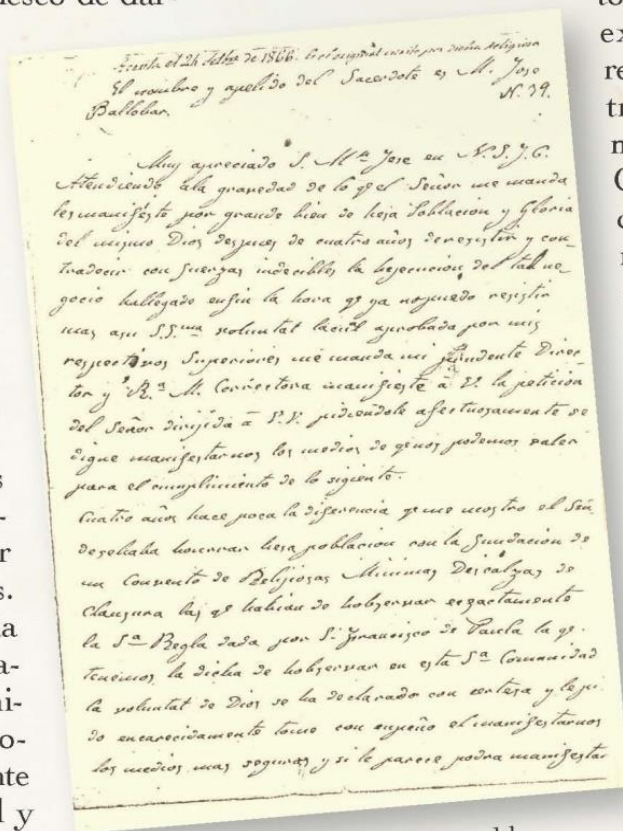 deseo de dar-
Escrita el 24 Setbre de 1866. Es el original escrito por dicha Religiosa
El nombre y apelido del Sacerdote es M. Jose
Ballobar.
N. 39.
Muy apreciado S. Mn Jose en N.S.J.C.
Atendiendo ala gravedad de lo qe el Señor me manda
les manifeste por grande bien de hesa Poblacion y Gloria
del mismo Dios despues de cuatro años de resistir y con-
tradecir con fuerzas indecibles la hejecucion del tal ne-
gocio hallegado enfin la hora qe ya nopuedo resistir
mas asu S.S.ma voluntat lacual aprobada por mis
respectivos Superiores me manda mi prudente Direc-
tor y Ra. M. Correctora manifieste á V. la peticion
del Señor dirijida á V.V. pidiendole afectuosamente se
digne manifestarnos los medios de qenos podemos valer
para el cumplimiento de lo sigiente.
Cuatro años hace poca la diferencia qe me mostro el Señ.
desehaba hourrar hesa poblacion con la fundacion de
un Convento de Religiosas Minimas Descalzas de
Clausura las qe habian de hobservar ecgactamente
la Sta Regla dada por Sn Francisco de Paula la qe
tenemos la dicha de hobservar en esta Sta Comunidad
la voluntat de Dios se ha declarado con certesa y lepi-
do encarecidamente tome con empeño el manifestarnos
los medios mas seguros y si le parece podra manifestar
s
-
r
s.
na
a-
ni-
o-
nte
l y
to
ex
re
tr
n